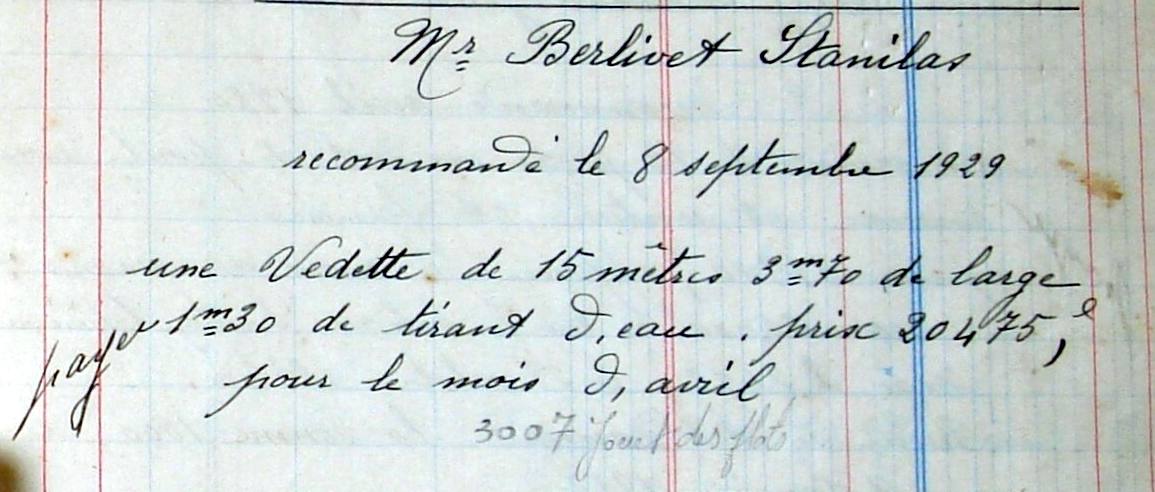 Mr Berlivet Stanilas
recommandé le 8 septembre 1929
une Vedette de 15 mètres 3m70 de large
payer 1m30 de tirant d,eau. prix 20475,
pour le mois d,avril
3007 Jouet des flots